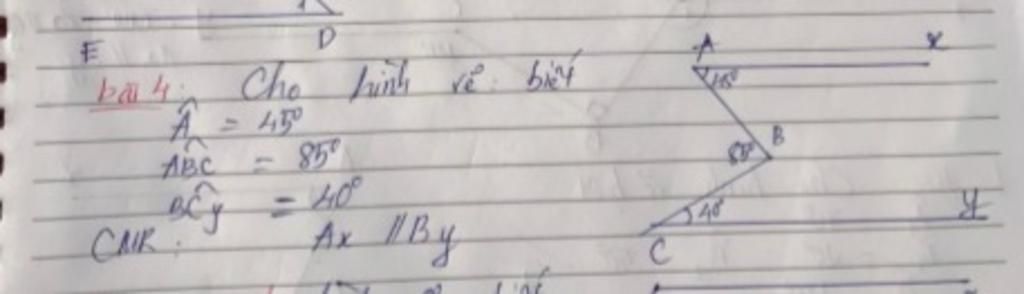 E D
bài 4: Cho hình vẽ: biết
Â = 45°
ABC = 85°
BCy = 40°
CMR: Ax // By
A x
45°
85° B
40° y
C